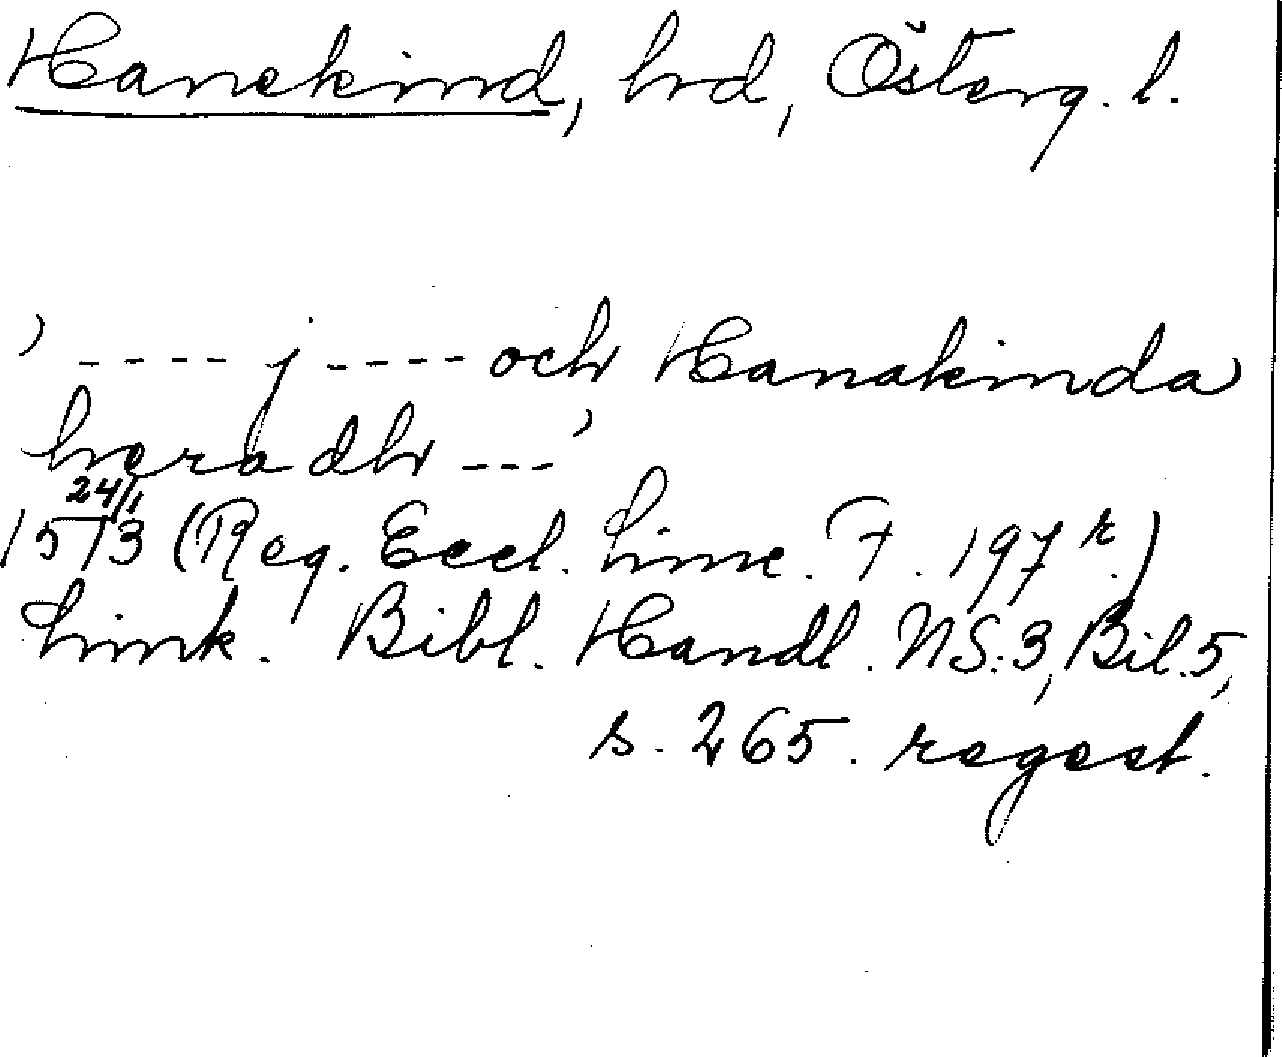 Hanekind, hd, Österg. l.
' ---- j ---- och Hanakinda
heradh ---'
24/1
1513 (Reg. Eccl. Linc. F. 197 r.)
Link. Bibl. Handl. NS:3, Bil.5,
s. 265. regest.